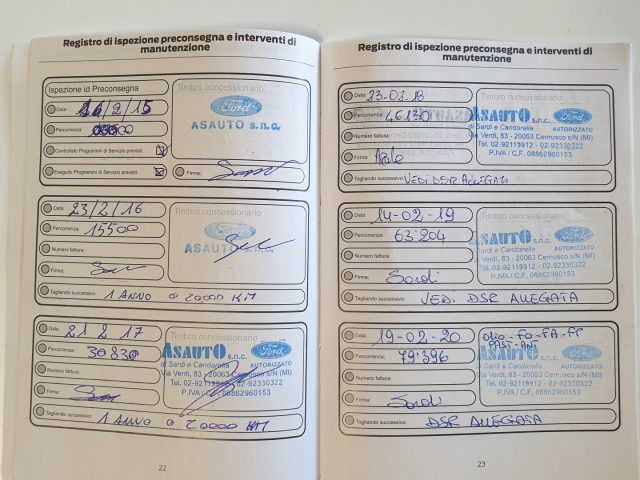 Registro di ispezione preconsegna e interventi di
manutenzione
Ispezione id Preconsegna
Timbro concessionario
Data: /2/15
Percorrenza:
Controllato Programmi di Servizio previsti
Eseguito Programmi di Servizio previsti
Firma:
Ford
ASAUTO s.n.c.
Data: 23/2/16
Timbro concessionario
Percorrenza: 15500
Numero fattura:
Firma:
Ford
ASAUTO
Tagliando successivo: 1 ANNO O 20000 KM
Data: 21 2 17
Timbro concessionario
Percorrenza: 30830
Numero fattura:
Firma:
ASAUTO s.n.c. Ford
di Sardi e Candarella AUTORIZZATO
Via Verdi, 83 - 20063 Cernusco s/N (MI)
Tel. 02-92119912 - 02-92330322
P.IVA / C.F. 08862960153
Tagliando successivo: 1 ANNO O 20000 KM
22
Registro di ispezione preconsegna e interventi di
manutenzione
Data: 23-01.18
Timbro concessionario
Percorrenza: 46130
Numero fattura:
Firma:
ASAUTO s.n.c. Ford
di Sardi e Candarella AUTORIZZATO
Via Verdi, 83 - 20063 Cernusco s/N (MI)
Tel. 02-92119912 - 02-92330322
P.IVA / C.F. 08862960153
Tagliando successivo: VEDI DSR ALLEGATA
Data: 14-02-19
Timbro concessionario
Percorrenza: 63'204
Numero fattura:
Firma: Sardi
ASAUTO s.n.c. Ford
di Sardi e Candarella AUTORIZZATO
Via Verdi, 83 - 20063 Cernusco s/N (MI)
Tel. 02-92119912 - 02-92330322
P.IVA / C.F. 08862960153
Tagliando successivo: VEDI DSR ALLEGATA
Data: 19-02-20
OLIO-FO-FA-FP
PAST-ANT
Percorrenza: 79'396
Numero fattura:
Firma: Sardi
ASAUTO s.n.c. Ford
di Sardi e Candarella AUTORIZZATO
Via Verdi, 83 - 20063 Cernusco s/N (MI)
Tel. 02-92119912 - 02-92330322
P.IVA / C.F. 08862960153
Tagliando successivo: DSR ALLEGATA
23